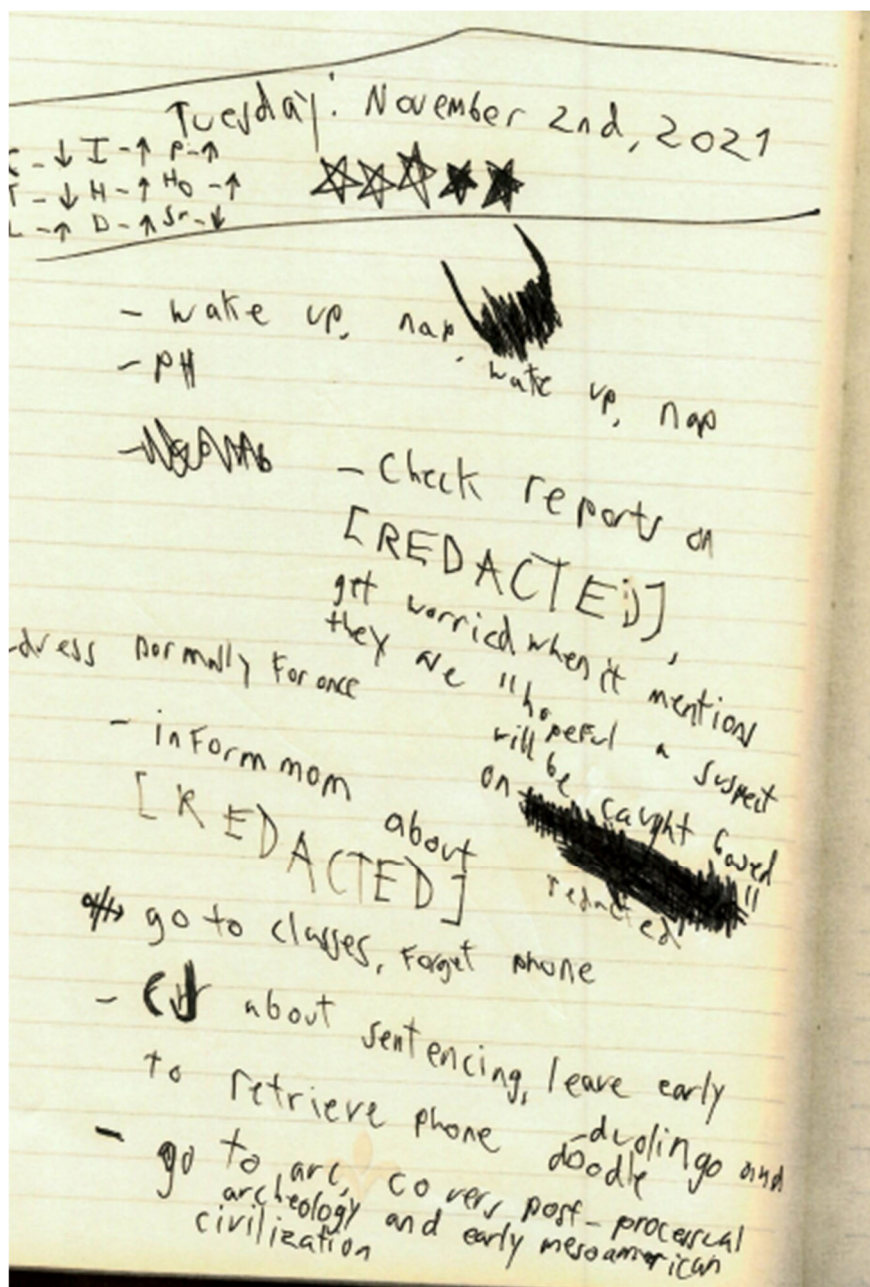 Tuesday: November 2nd, 2021
- ↓ I - ↑ P - ↑
- ↓ H - ↑ HO - ↑
L - ↑ D - ↑ Sr - ↓
- wake up, nap, wake up, nap
- PH
- Check reports on
[REDACTED],
get worried when it mention
they are "hopeful a suspect
will be caught based
on "
redacted
- dress normally for once
- inform mom about
[REDACTED]
go to classes, forget phone
- about sentencing, leave early
to retrieve phone
- duolingo and
doodle
- go to arc, covers post-processual
archeology and early mesoamerican
civilization